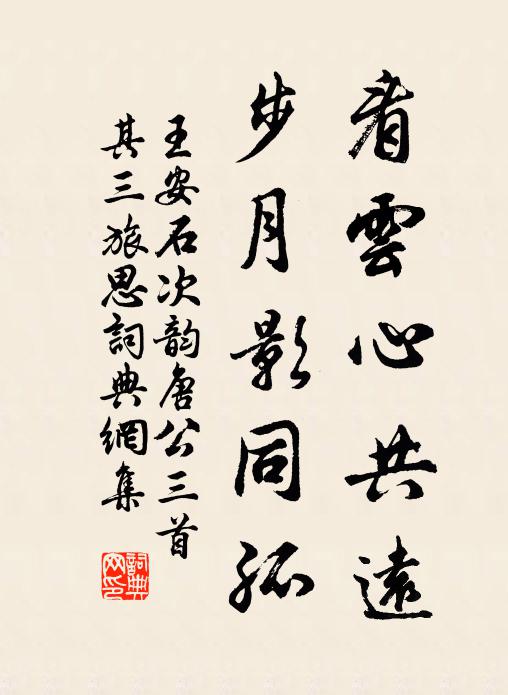 看雲心共遠
步月影同孤
王安石次韵唐公三首
其三旅思詞典網集
詞典
网印